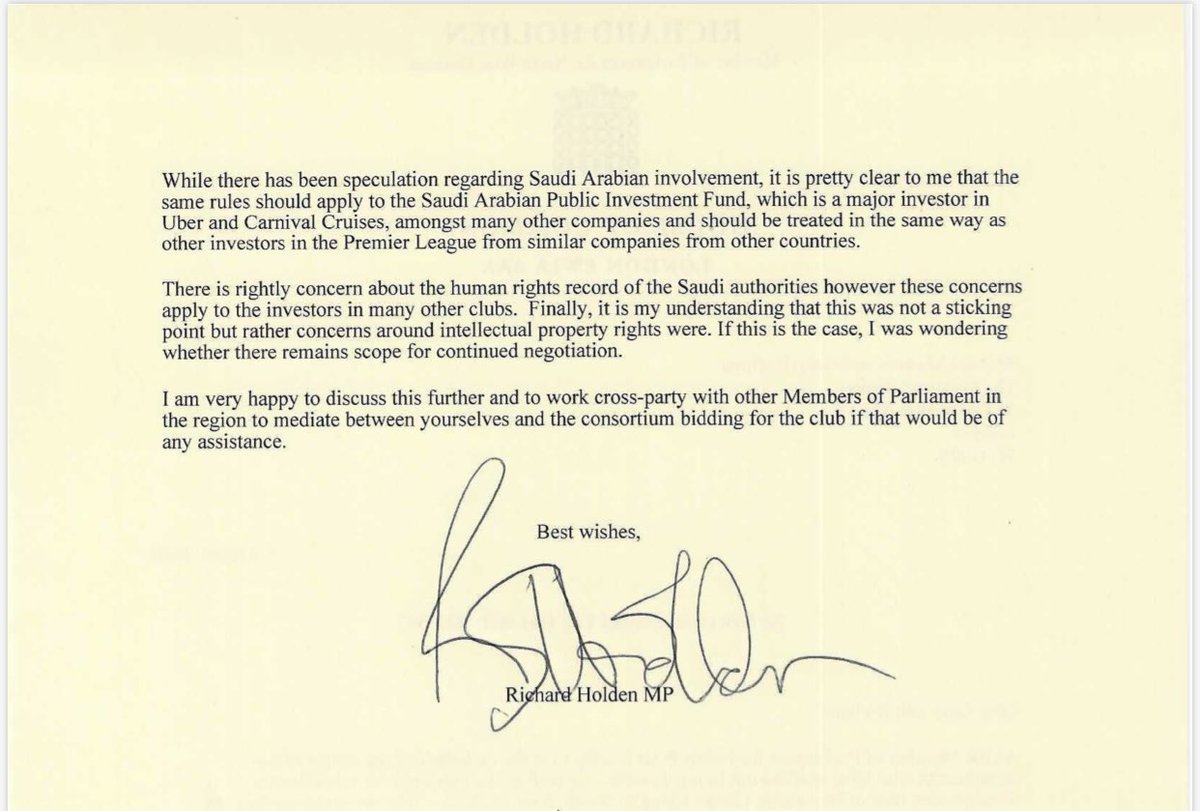 While there has been speculation regarding Saudi Arabian involvement, it is pretty clear to me that the
same rules should apply to the Saudi Arabian Public Investment Fund, which is a major investor in
Uber and Carnival Cruises, amongst many other companies and should be treated in the same way as
other investors in the Premier League from similar companies from other countries.
There is rightly concern about the human rights record of the Saudi authorities however these concerns
apply to the investors in many other clubs.  Finally, it is my understanding that this was not a sticking
point but rather concerns around intellectual property rights were. If this is the case, I was wondering
whether there remains scope for continued negotiation.
I am very happy to discuss this further and to work cross-party with other Members of Parliament in
the region to mediate between yourselves and the consortium bidding for the club if that would be of
any assistance.
Best wishes,
Richard Holden MP